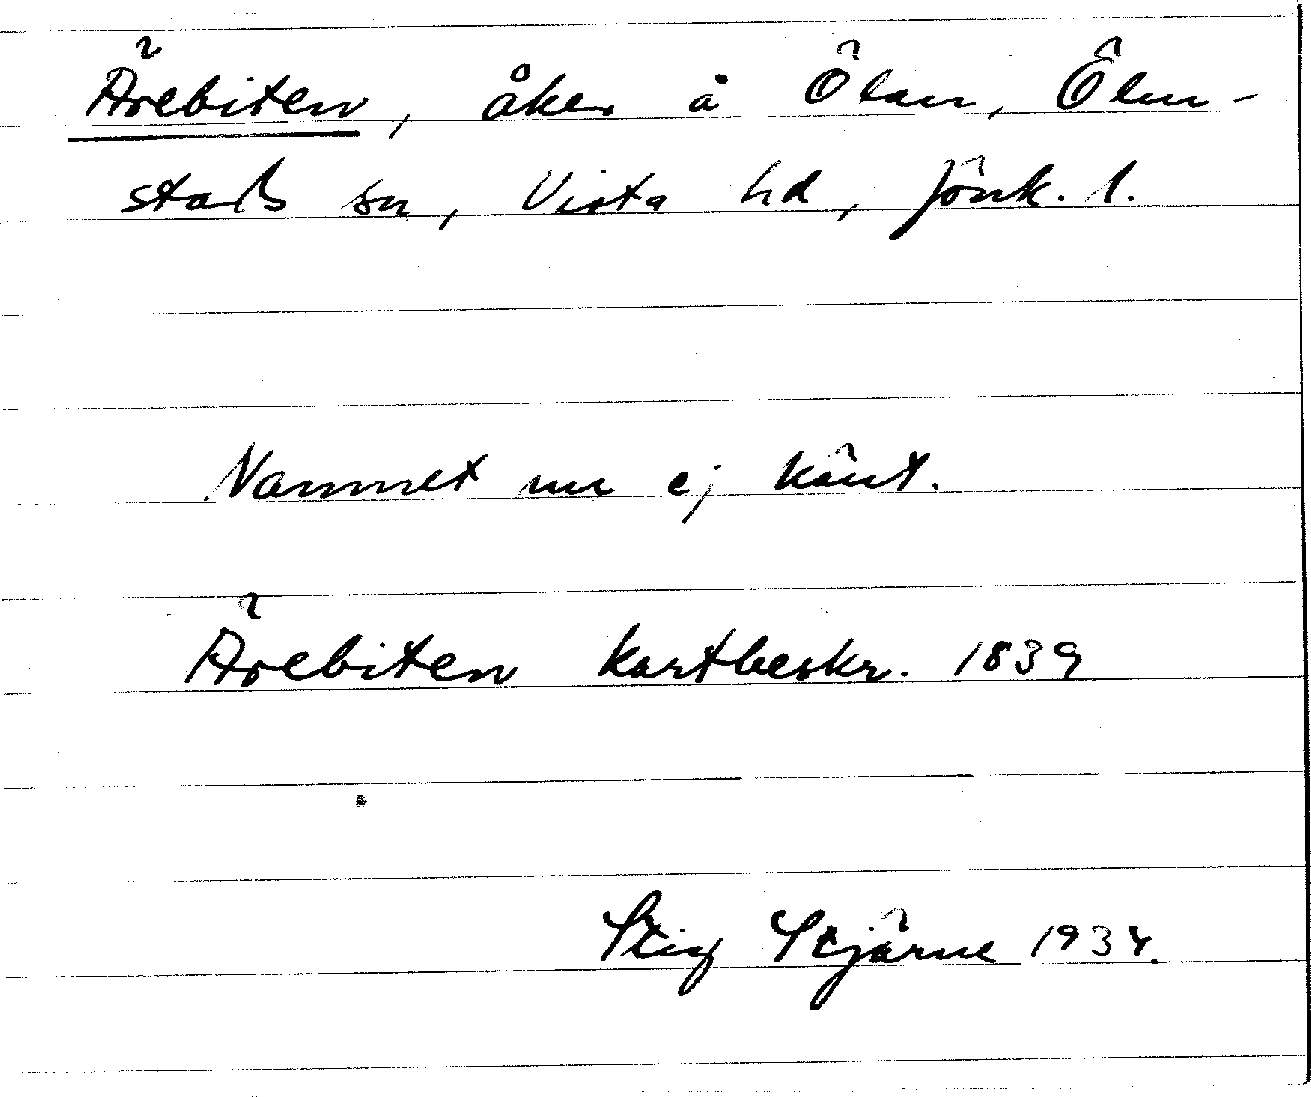 Ärebiten, åker å Ölan, Ölm-
stads sn, Vista hd, Jönk. l.
Namnet nu ej känt.
Ärebiten kartbeskr. 1839
Stig Stjärne 1934.